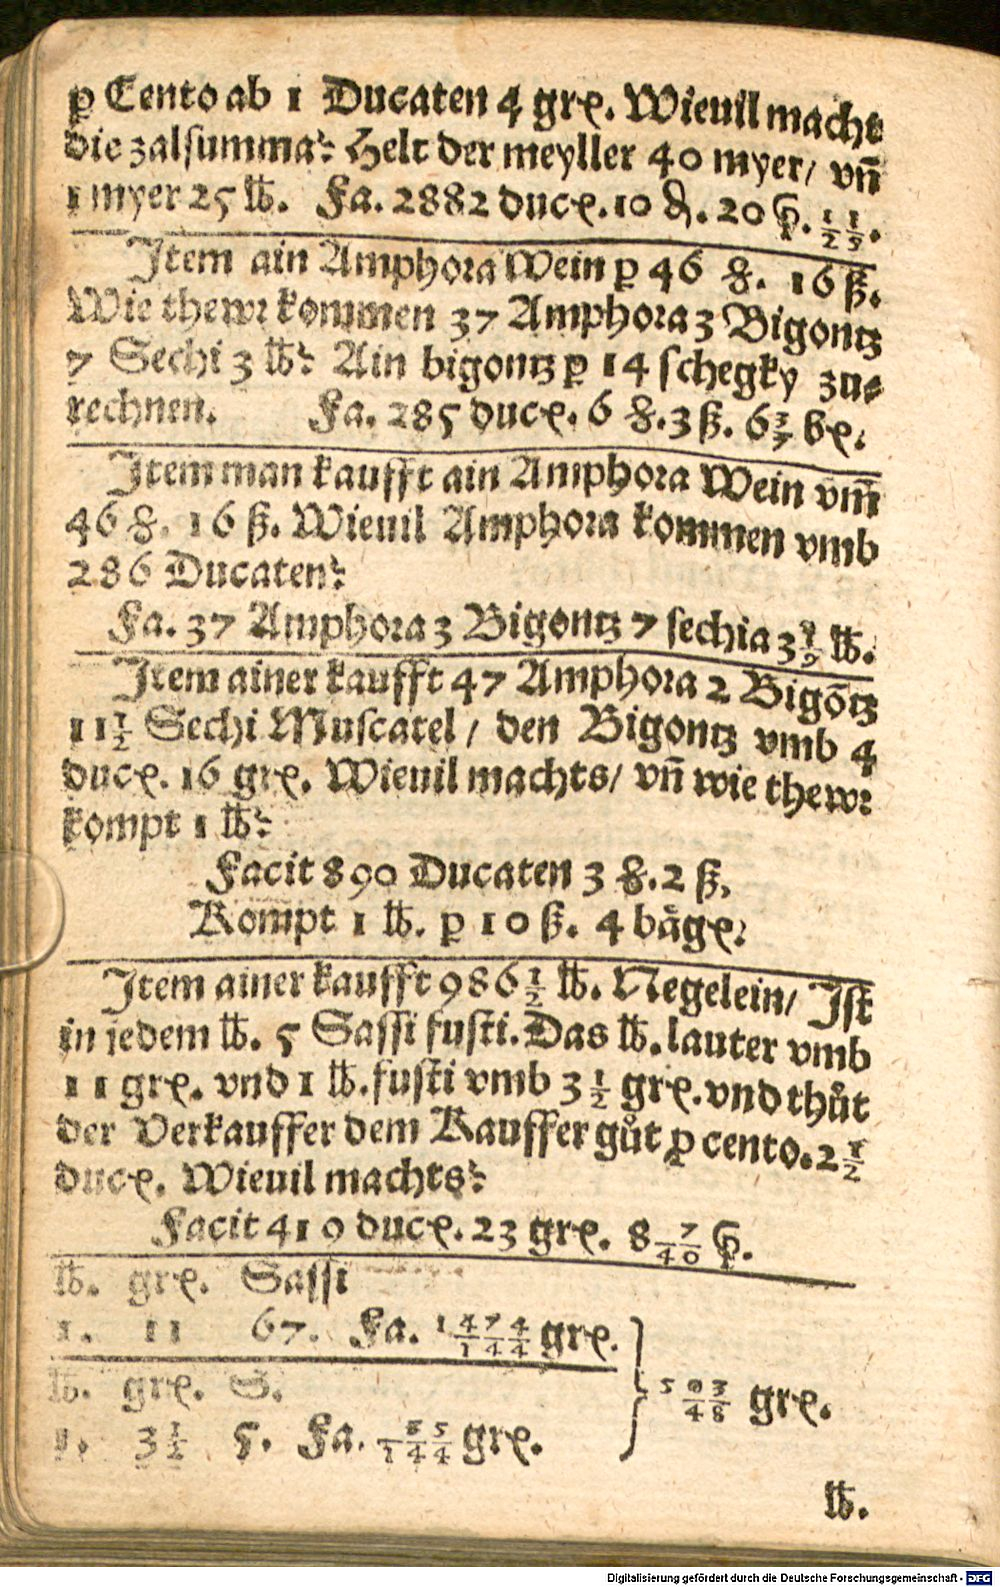 ꝑ Cento ab 1 Ducaten 4 grꝭ. Wieuil macht
die zalsumma? Helt der meyller 40 myer/ vñ
1 myer 25 ℔. Fa. 2882 ducꝭ. 10 ₰. 20 ꝑ. 1/2 1/5.
Item ain Amphora Wein ꝑ 46 ℔. 16 ß.
Wie thewr kommen 37 Amphora 3 Bigontz
7 Sechi 3 ℔? Ain bigontz ꝑ 14 schegky zu⸗
rechnen. Fa. 285 ducꝭ. 6 ℔. 3 ß. 6 3/7 bꝭ.
Item man kaufft ain Amphora Wein vm̄
46 ℔. 16 ß. Wieuil Amphora kommen vmb
286 Ducaten?
Fa. 37 Amphora 3 Bigontz 7 sechia 3 ℔.
Item ainer kaufft 47 Amphora 2 Bigōtz
11 1/2 Sechi Muscatel/ den Bigontz vmb 4
ducꝭ. 16 grꝭ. Wieuil machts/ vñ wie thewr
kompt 1 ℔?
Facit 890 Ducaten 3 ℔. 2 ß.
Kompt 1 ℔. ꝑ 10 ß. 4 bågꝭ.
Item ainer kaufft 986 1/2 ℔. Negelein/ Ist
in jedem ℔. 5 Sassi fusti. Das ℔. lauter vmb
11 grꝭ. vnd 1 ℔. fusti vmb 3 1/2 grꝭ. vnd thůt
der Verkauffer dem Kauffer gůt ꝑ cento. 2 1/2
ducꝭ. Wieuil machts?
Facit 419 ducꝭ. 23 grꝭ. 8 7/40 ꝑ.
℔. grꝭ. Sassi
1. 11 67. Fa. 1 474/144 grꝭ.
℔. grꝭ. S.
1. 3 1/2 5. Fa. 35/144 grꝭ.
5 3/48 grꝭ.
℔.
Digitalisierung gefördert durch die Deutsche Forschungsgemeinschaft - DFG